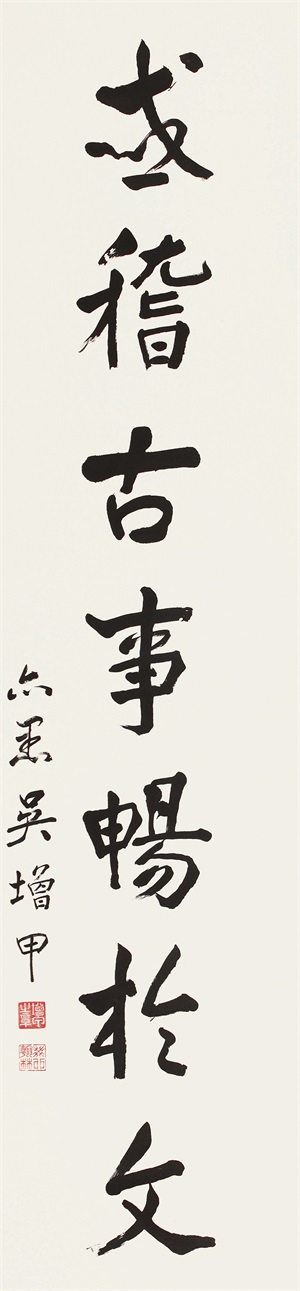 或稽古事暢於文
亦愚吳增甲